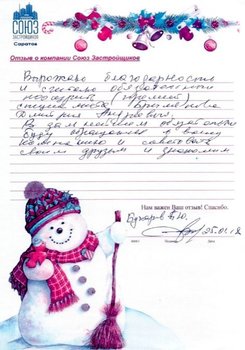 СОЮЗ
ЗАСТРОЙЩИКОВ
Саратов
Отзыв о компании Союз Застройщиков
Выражаю благодарность
и считаю обязательным
поощрить (премией)
специалиста
Дмитрия Андреевича.
В дальнейшем обязательно
буду обращаться в вашу
компанию и советовать
своим друзьям и знакомым
Нам важен Ваш отзыв! Спасибо.
25.01.18
Дата